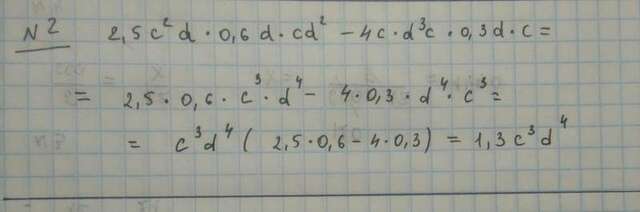 N2 2,5c²d · 0,6d · cd² − 4c · d³c · 0,3d · c =
= 2,5 · 0,6 · c³ · d⁴ − 4 · 0,3 · d⁴ · c³ =
= c³d⁴ ( 2,5·0,6 − 4·0,3) = 1,3c³d⁴